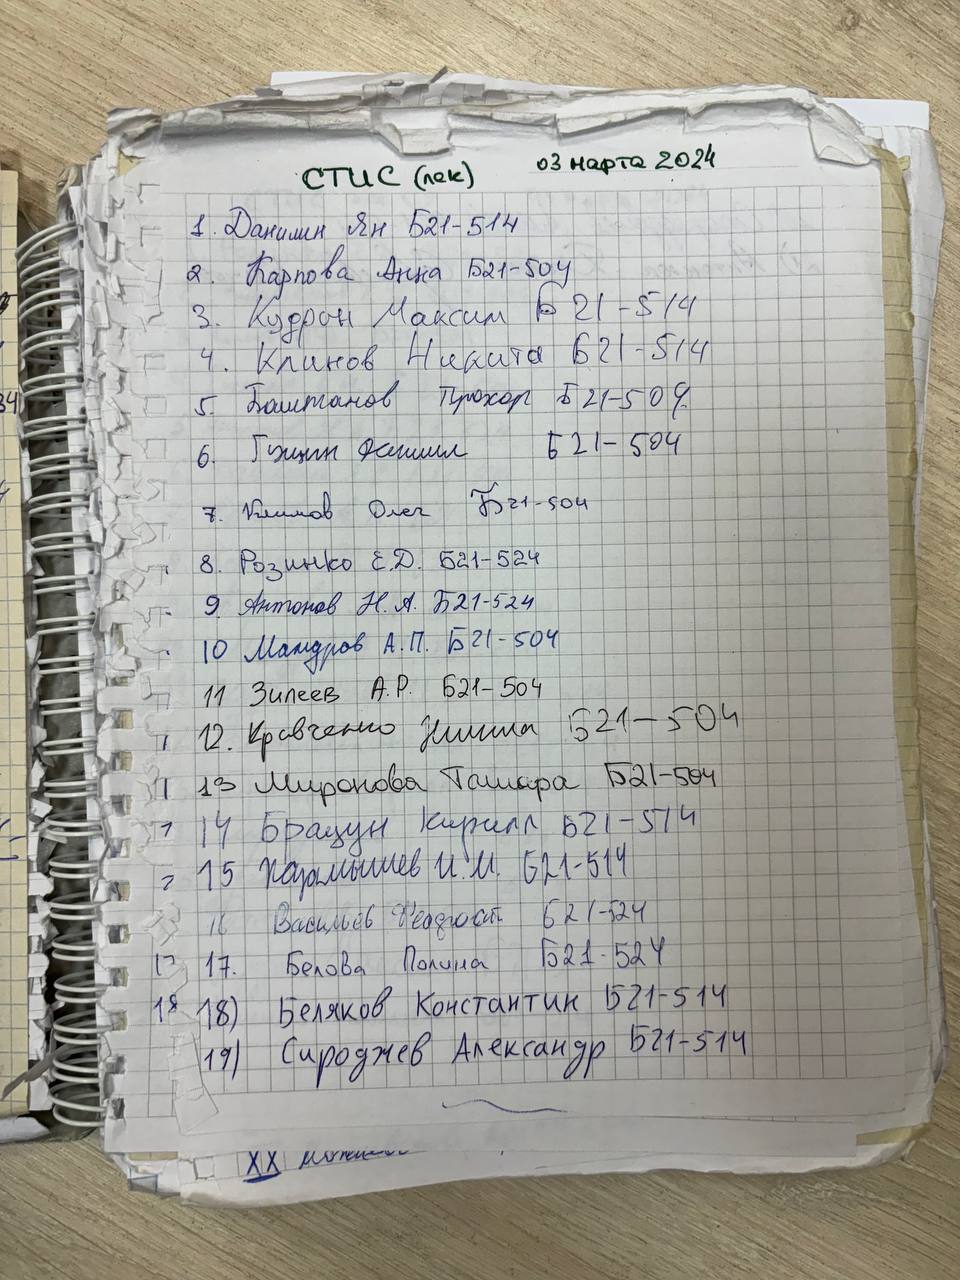 СТИС (лек) 03 марта 2024
1. Данилин Ян Б21-514
2. Карпова Анна Б21-504
3. Кудрон Максим Б21-514
4. Клинов Никита Б21-514
5. Баштанов Прохор Б21-504
6. Гущин Даниил Б21-504
7. Климов Олег Б21-504
8. Розинко Е.Д. Б21-524
9 Антонов Н.А. Б21-524
10 Мандров А.П. Б21-504
11 Зилеев А.Р. Б21-504
12. Кравченко Б21-504
13 Миронова Тамара Б21-504
14 Брацун Кирилл Б21-514
15 И.М. Б21-514
16 Васильев Феодосий Б21-524
17. Белова Полина Б21-524
18) Беляков Константин Б21-514
19) Сироджев Александр Б21-514
XX